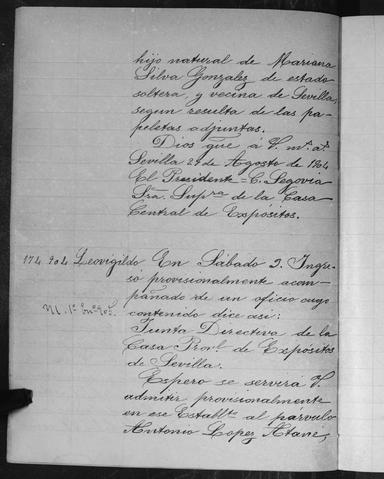 hijo natural de Mariana
Silva Gonzalez de estado
soltera, y vecina de Sevilla,
segun resulta de las pa-
peletas adjuntas.
Dios gue á V. mˢ aˢ
Sevilla 29 de Agosto de 1904
El Presidente = C. Segovia
Sra. Supra de la Casa
Central de Expósitos.
174 904 Leovigildo En Sábado 2. Ingre-
só provisionalmente acom-
pañado de un oficio cuyo
contenido dice asi:
Junta Directiva de la
Casa Provl. de Expósitos
de Sevilla.
Espero se servirá V.
admitir provisionalmente
en ese Establto. al párvulo
Antonio Lopez